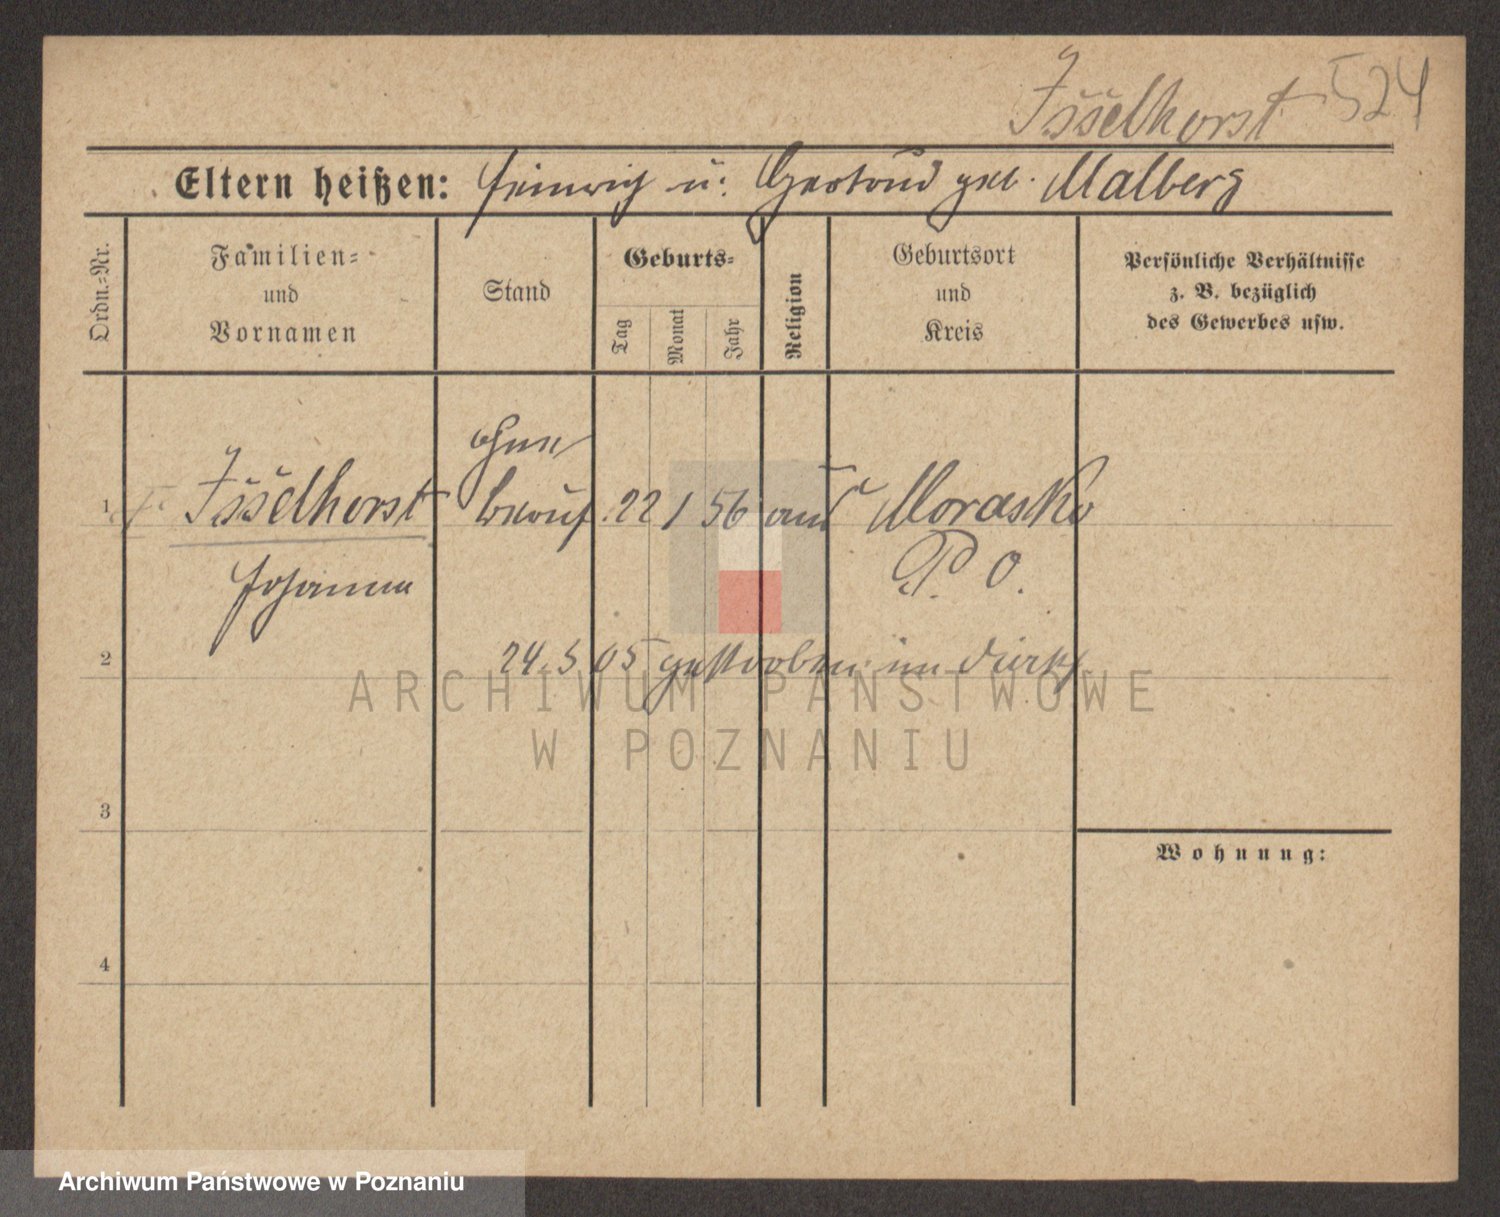 Isselhorst 524
Eltern heißen: Heinrich u. Gertrud geb. Malberg
Ordn.-Nr.
Familien-
und
Vornamen
Stand
Geburts-
Tag
Monat
Jahr
Religion
Geburtsort
und
Kreis
Persönliche Verhältnisse
z. B. bezüglich
des Gewerbes usw.
ohne
1 Isselhorst Beruf 22 1 56 Morasko
P. O.
Johanna
2 24. 5 05 gestorben im
ARCHIWUM PAŃSTWOWE
W POZNANIU
3
Wohnung:
4
Archiwum Państwowe w Poznaniu